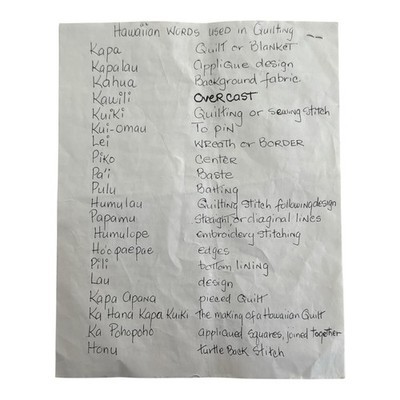 Hawaiian Words used in Quilting
Kapa Quilt or Blanket
Kapalau Applique design
Kahua Background fabric
Kawili OVERCAST
Kuiki Quilting or sewing stitch
Kui-omau To pin
Lei WREATH or BORDER
Piko Center
Pa'i Baste
Pulu Batting
Humulau Quilting stitch following design
Papamu straight or diaginal lines
Humulope embroidery stitching
Ho'opaepae edges
Pili bottom lining
Lau design
Kapa Apana pieced Quilt
Ka Hana Kapa Kuiki the making of a Hawaiian Quilt
Ka Pohopoho appliqued squares, joined together
Honu turtle Back Stitch